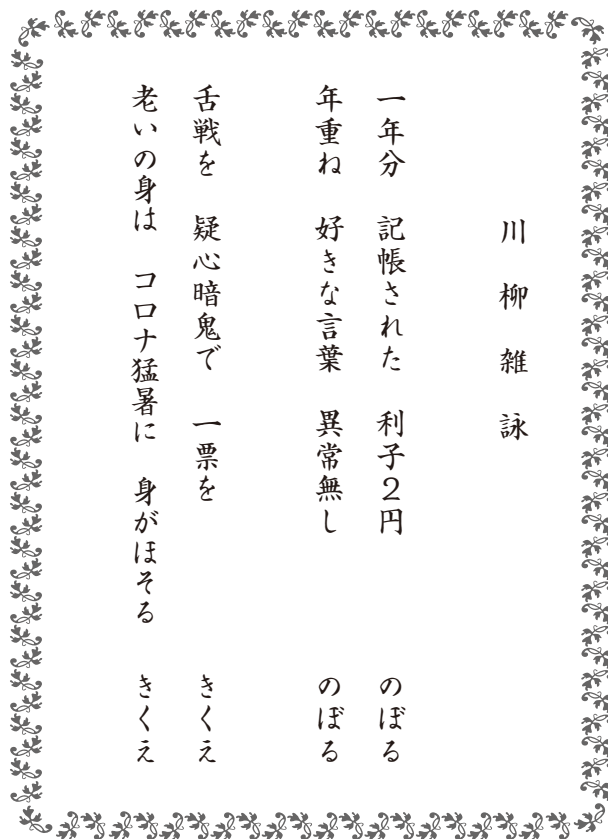 川柳雑詠
一年分　記帳された　利子２円　のぼる
年重ね　好きな言葉　異常無し　のぼる
舌戦を　疑心暗鬼で　一票を　きくえ
老いの身は　コロナ猛暑に　身がほそる　きくえ